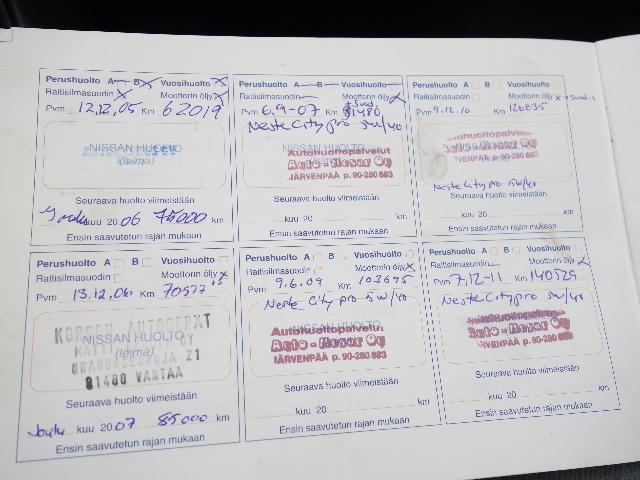 Perushuolto A B Vuosihuolto
Raitisilmasuodin Moottorin öljy
Pvm 12.12.05 Km 62019
NISSAN HUOLTO
(leima)
Seuraava huolto viimeistään
kuu 2006 75000 km
Ensin saavutetun rajan mukaan
Perushuolto A B Vuosihuolto
Raitisilmasuodin Moottorin öljy
Pvm 13.12.06 Km 70577
KORSON AUTOSEPÄT
NISSAN HUOLTO
(leima)
21
81400 VANTAA
Seuraava huolto viimeistään
Joulu kuu 2007 85000 km
Ensin saavutetun rajan mukaan
Perushuolto A B Vuosihuolto
Raitisilmasuodin Moottorin öljy
Pvm 6.9-07 Km 81480
Neste City pro 5w/40
NISSAN HUOLTO
Autohuoltopalvelut
Oy
JÄRVENPÄÄ p. 90-280 883
Seuraava huolto viimeistään
kuu 20 km
Ensin saavutetun rajan mukaan
Perushuolto A B Vuosihuolto
Raitisilmasuodin Moottorin öljy
Pvm 9.6.09 Km 103675
Neste City pro 5w/40
NISSAN HUOLTO
Autohuoltopalvelut
Oy
JÄRVENPÄÄ p. 90-280 883
Seuraava huolto viimeistään
kuu 20 km
Ensin saavutetun rajan mukaan
Perushuolto A B Vuosihuolto
Raitisilmasuodin Moottorin öljy
Pvm 9.12.10 Km 126835
Autohuoltopalvelut
Oy
JÄRVENPÄÄ p. 90-280 883
Neste City pro 5w/40
Seuraava huolto viimeistään
kuu 20 km
Ensin saavutetun rajan mukaan
Perushuolto A B Vuosihuolto
Raitisilmasuodin Moottorin öljy
Pvm 7.12-11 Km 140529
Neste City pro 5w/40
Autohuoltopalvelut
Oy
JÄRVENPÄÄ p. 90-280 883
Seuraava huolto viimeistään
kuu 20 km
Ensin saavutetun rajan mukaan